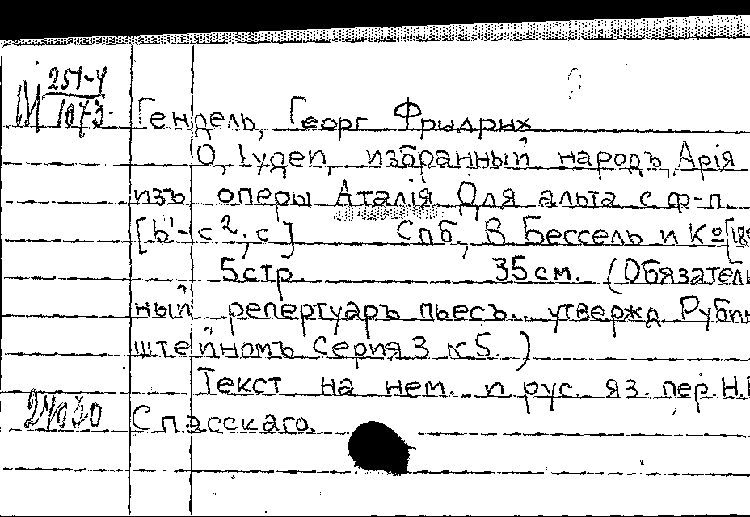 М 251-4
1073
Гендель, Георг Фридрих
О, Iудеи, избранный народъ, Арiя
изъ оперы Аталiя Для альта с ф-п.
[b'-c²; c] Спб, В. Бессель и Кº [189
5 стр. 35 см. (Обязатель
ный репертуаръ пьесъ.. утвержд Рубин
штейномъ Серия 3 к 5.)
Текст на нем. и рус. яз. пер. Н.
24030 Спасскаго.